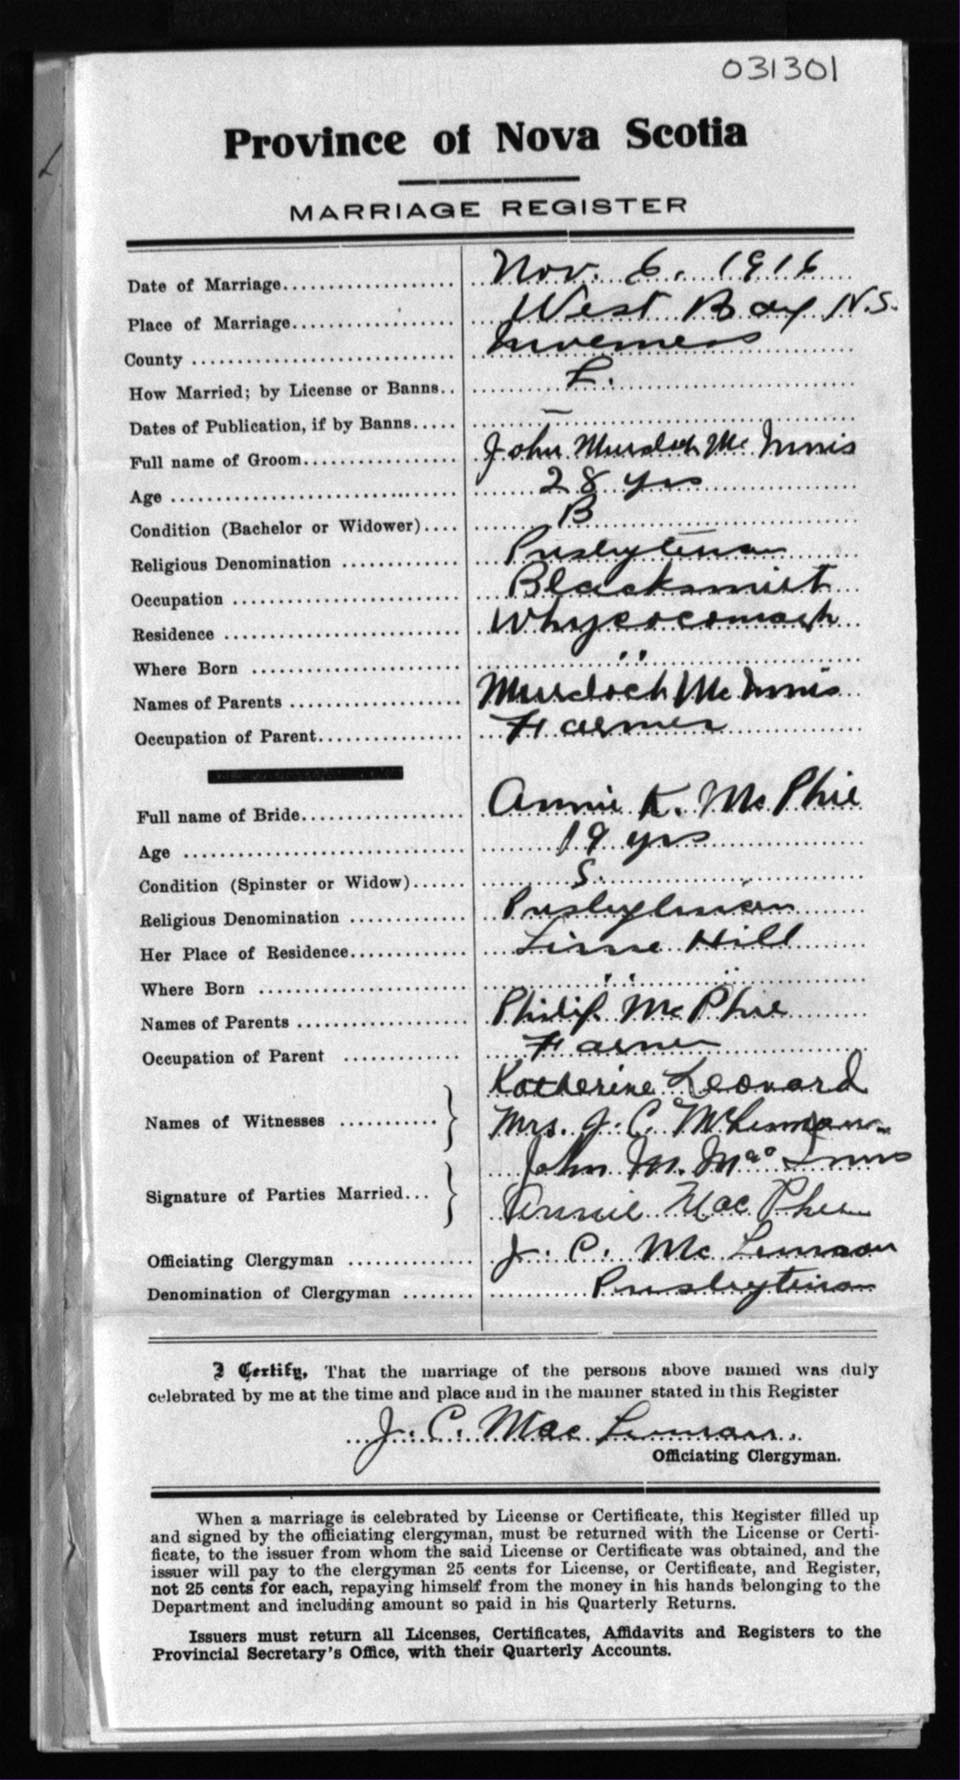 031301
Province of Nova Scotia
MARRIAGE REGISTER
Date of Marriage Nov. 6. 1916
Place of Marriage West Bay N.S.
County Inverness
How Married; by License or Banns L.
Dates of Publication, if by Banns —
Full name of Groom John Murdoch Mc Innis
Age 28 yrs
Condition (Bachelor or Widower) B
Religious Denomination Presbyterian
Occupation Blacksmith
Residence Whycocomagh
Where Born ''
Names of Parents Murdoch Mc Innis
Occupation of Parent Farmer
Full name of Bride Annie K. Mc Phie
Age 19 yrs
Condition (Spinster or Widow) S.
Religious Denomination Presbyterian
Her Place of Residence Lime Hill
Where Born '' ''
Names of Parents Philip Mc Phie
Occupation of Parent Farmer
Katherine Leonard
Names of Witnesses Mrs. J. C. McLennan
John M. Mac Innis
Signature of Parties Married Annie Mac Phee
Officiating Clergyman J. C. Mc Lennan
Denomination of Clergyman Presbyterian
I Certify, That the marriage of the persons above named was duly
celebrated by me at the time and place and in the manner stated in this Register
J. C. Mac Lennan.
Officiating Clergyman.
When a marriage is celebrated by License or Certificate, this Register filled up
and signed by the officiating clergyman, must be returned with the License or Certi-
ficate, to the issuer from whom the said License or Certificate was obtained, and the
issuer will pay to the clergyman 25 cents for License, or Certificate, and Register,
not 25 cents for each, repaying himself from the money in his hands belonging to the
Department and including amount so paid in his Quarterly Returns.
Issuers must return all Licenses, Certificates, Affidavits and Registers to the
Provincial Secretary's Office, with their Quarterly Accounts.